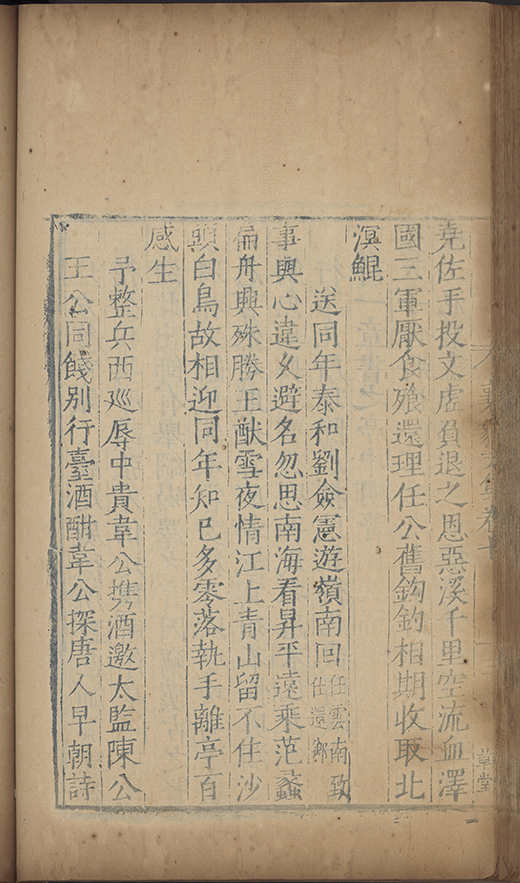 堯佐手投文虚負退之恩惡溪千里空流血澤
國三軍厭食飱還理任公舊鈎釣相期收取北
溟鯤
送同年泰和劉僉憲遊嶺南回任雲南致仕還鄉
事與心違又避名忽思南海看昇平遠乘范蠡
扁舟興殊勝王猷雪夜情江上青山留不住沙
頭白鳥故相迎同年知已多零落執手離亭百
感生
予整兵西廵辱中貴韋公携酒邀太監陳公
王公同餞别行臺酒酣韋公探唐人早朝詩
襄毅文集卷
草堂